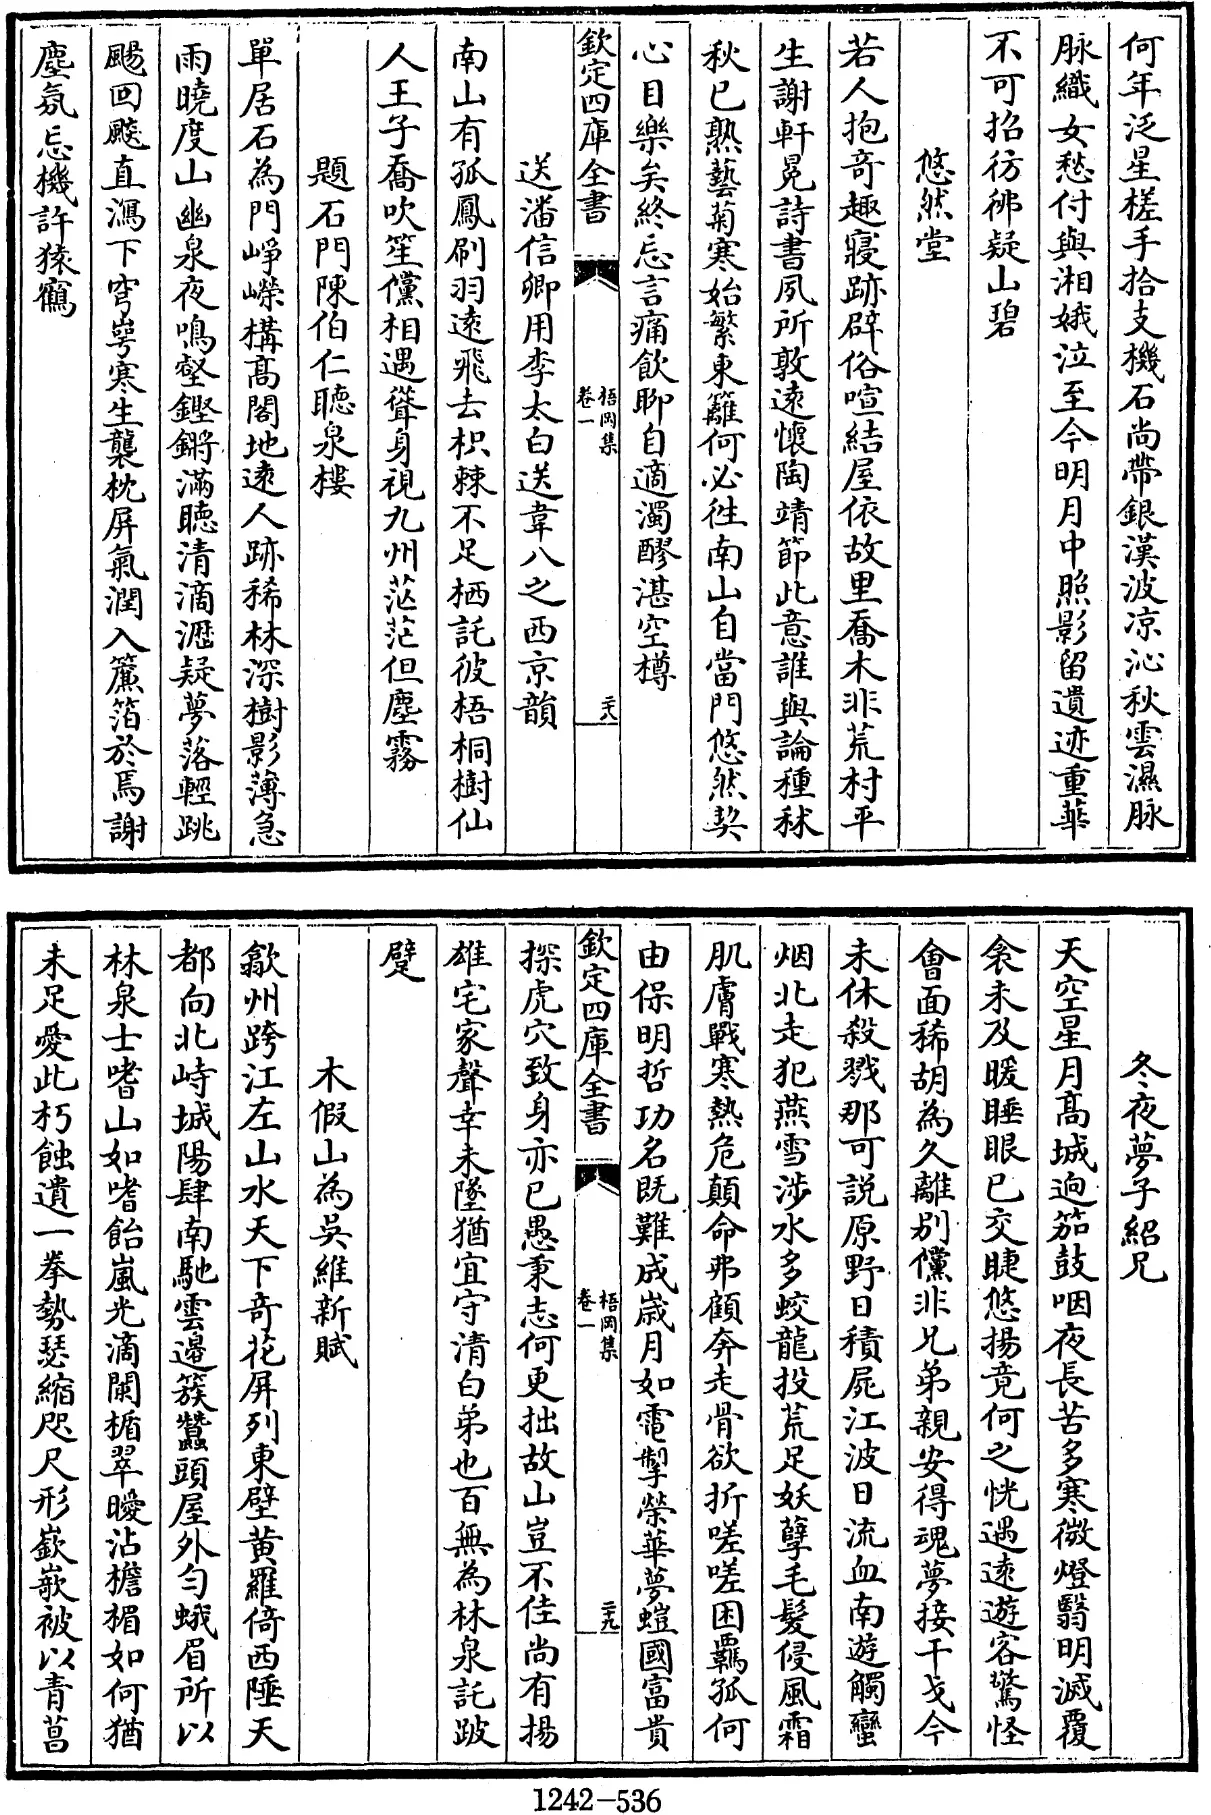 何年泛星槎手拾支機石尚帶銀漢波凉沁秋雲濕脉
脉織女愁付與湘娥泣至今明月中照影留遺迹重華
不可招彷彿疑山碧
悠然堂
若人抱奇趣寢跡辟俗喧結屋依故里喬木非荒村平
生謝軒冕詩書夙所敦遠懷陶靖節此意誰與論種秫
秋已熟藝菊寒始繁東籬何必徃南山自當門悠然契
心目樂矣終忘言痛飲聊自適濁醪湛空樽
欽定四庫全書
梧岡集
卷一
二十八
送潘信卿用李太白送韋八之西京韻
南山有孤鳳刷羽逺飛去枳棘不足栖託彼梧桐樹仙
人王子喬吹笙儻相遇聳身視九州茫茫但塵霧
題石門陳伯仁聽泉樓
單居石為門崢嶸構髙閣地逺人跡稀林深樹影薄急
雨曉度山幽泉夜鳴壑鏗鏘滿聴清滴瀝疑夢落輕跳
颺回飇直瀉下穹崿寒生襲枕屏氣潤入簾箔於焉謝
塵氛忘機許猿鶴
冬夜夢子紹兄
天空星月髙城逈笳鼓咽夜長苦多寒微燈翳明滅覆
衾未及暖睡眼已交睫悠揚竟何之恍遇逺遊客驚怪
會面稀胡為久離别儻非兄弟親安得魂夢接干戈今
未休殺戮那可説原野日積屍江波日流血南遊觸蠻
烟北走犯燕雪涉水多蛟龍投荒足妖孽毛髪侵風霜
肌膚戰寒熱危顛命弗顧奔走骨欲折嗟嗟困羈孤何
由保明哲功名既難成嵗月如電掣榮華夢螘國富貴
欽定四庫全書
梧岡集
卷一
二十九
探虎穴致身亦已愚秉志何更拙故山豈不佳尚有揚
雄宅家聲幸未墜猶宜守清白弟也百無為林泉託跛
躄
木假山為吳維新賦
歙州跨江左山水天下奇花屏列東壁黄羅倚西陲天
都向北峙城陽肆南馳雲邉簇蠶頭屋外勻蛾眉所以
林泉士嗜山如嗜飴嵐光滴闌楯翠曖沾櫩楣如何猶
未足愛此朽蝕遺一拳勢瑟縮咫尺形嶔嶔被以青菖
1242-536